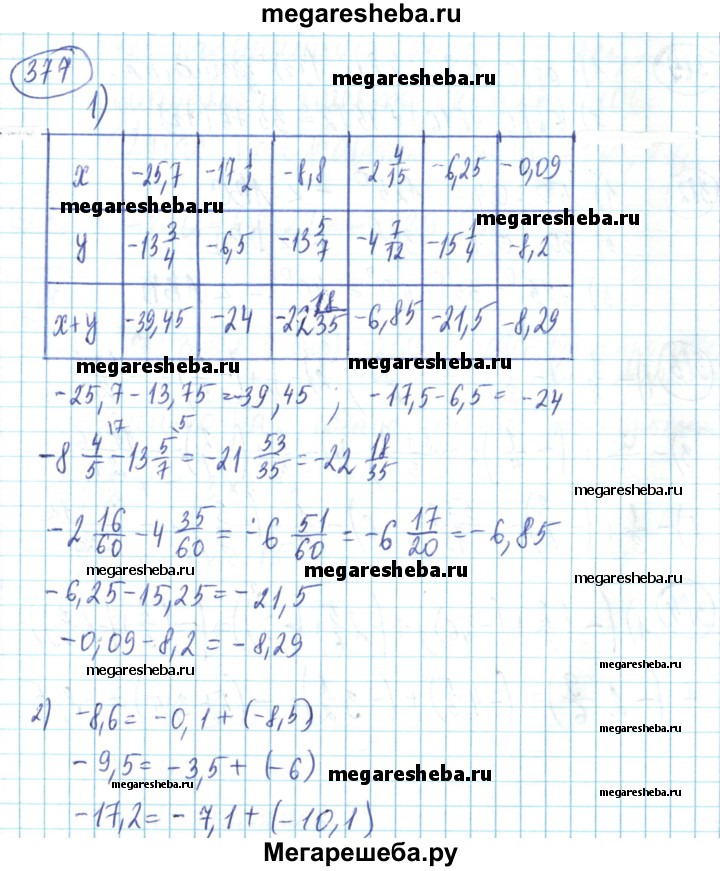 megaresheba.ru
377
megaresheba.ru
1)
x -25,7 -17 1/2 -8,8 -2 4/15 -6,25 -0,09
megaresheba.ru
megaresheba.ru
y -13 3/4 -6,5 -13 5/7 -4 7/12 -15 1/4 -8,2
x+y -39,45 -24 -22 18/35 -6,85 -21,5 -8,29
megaresheba.ru
megaresheba.ru
-25,7-13,75=-39,45 ; -17,5-6,5=-24
-8 4/5 \7 -13 5/7 \5 = -21 53/35 = -22 18/35
megaresheba.ru
-2 16/60 -4 35/60 = -6 51/60 = -6 17/20 = -6,85
megaresheba.ru
megaresheba.ru
megaresheba.ru
-6,25-15,25=-21,5
-0,09-8,2=-8,29
megaresheba.ru
megaresheba.ru
2) -8,6= -0,1+(-8,5)
megaresheba.ru
-9,5= -3,5+ (-6)
megaresheba.ru
megaresheba.ru
-17,2= -7,1+(-10,1)
megaresheba.ru
Мегарешеба.ру